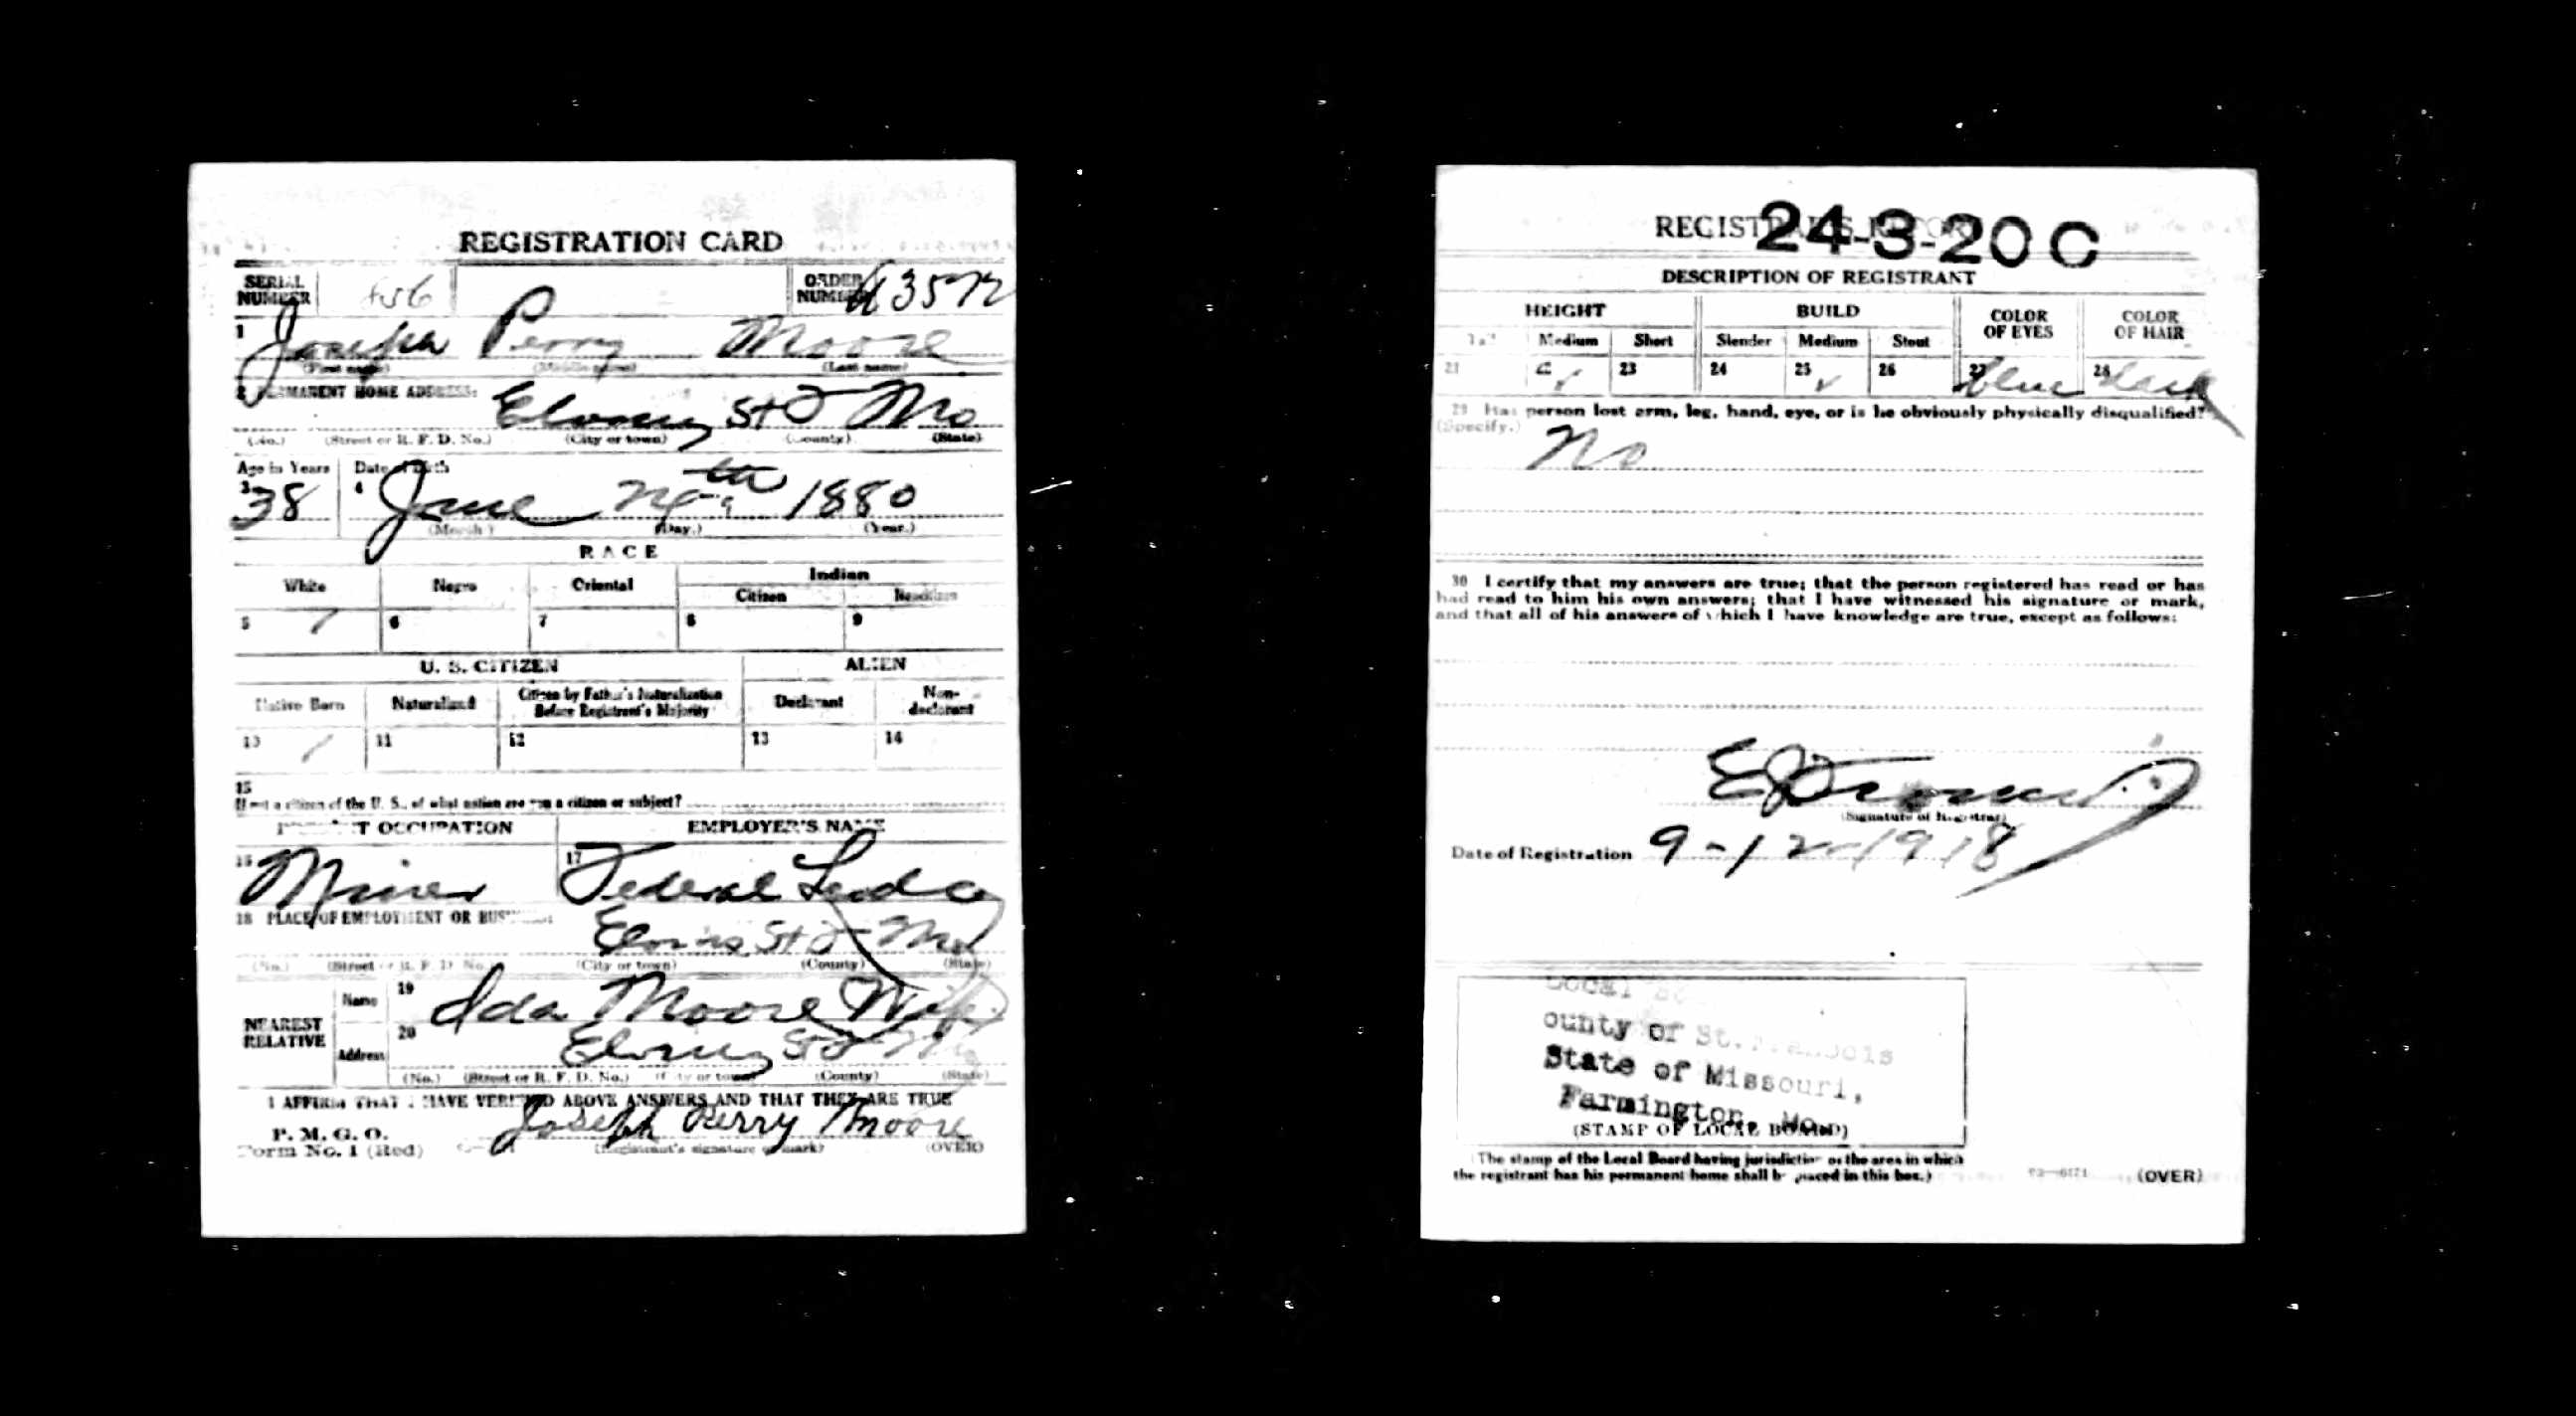 REGISTRATION CARD
SERIAL NUMBER 856 ORDER NUMBER A3572
1 Joseph Perry Moore
(First name) (Middle name) (Last name)
2 PERMANENT HOME ADDRESS:
Elvins St F Mo
(No.) (Street or R. F. D. No.) (City or town) (County) (State)
Age in Years Date of Birth
3 38 4 June th 1880
(Month) (Day.) (Year.)
RACE
White Negro Oriental Indian
Citizen Noncitizen
5 / 6 7 8 9
U. S. CITIZEN ALIEN
Native Born Naturalized Citizen by Father's Naturalization Before Registrant's Majority Declarant Non-declarant
10 / 11 12 13 14
15
If not a citizen of the U. S., of what nation are you a citizen or subject?
PRESENT OCCUPATION EMPLOYER'S NAME
16 Miner 17 Federal Lead Co
18 PLACE OF EMPLOYMENT OR BUSINESS:
Elvins St F Mo
(No.) (Street or R. F. D. No.) (City or town) (County) (State)
NEAREST RELATIVE
Name 19 Ida Moore Wife
Address 20 Elvins St F Mo
(No.) (Street or R. F. D. No.) (City or town) (County) (State)
I AFFIRM THAT I HAVE VERIFIED ABOVE ANSWERS AND THAT THEY ARE TRUE
P. M. G. O.
Form No. 1 (Red) Joseph Perry Moore
(Registrant's signature or mark) (OVER)
REGISTRAR'S REPORT
24-3-20 C
DESCRIPTION OF REGISTRANT
HEIGHT BUILD COLOR OF EYES COLOR OF HAIR
Tall Medium Short Slender Medium Stout
21 22 ✓ 23 24 25 ✓ 26 27 blue 28 dark
29 Has person lost arm, leg, hand, eye, or is he obviously physically disqualified?
(Specify.) No
30 I certify that my answers are true; that the person registered has read or has
had read to him his own answers; that I have witnessed his signature or mark,
and that all of his answers of which I have knowledge are true, except as follows:
(Signature of Registrar)
Date of Registration 9-12-1918
Local
ounty of St. Francois
State of Missouri,
Farmington, Mo.
(STAMP OF LOCAL BOARD)
(The stamp of the Local Board having jurisdiction of the area in which
the registrant has his permanent home shall be placed in this box.)
(OVER)